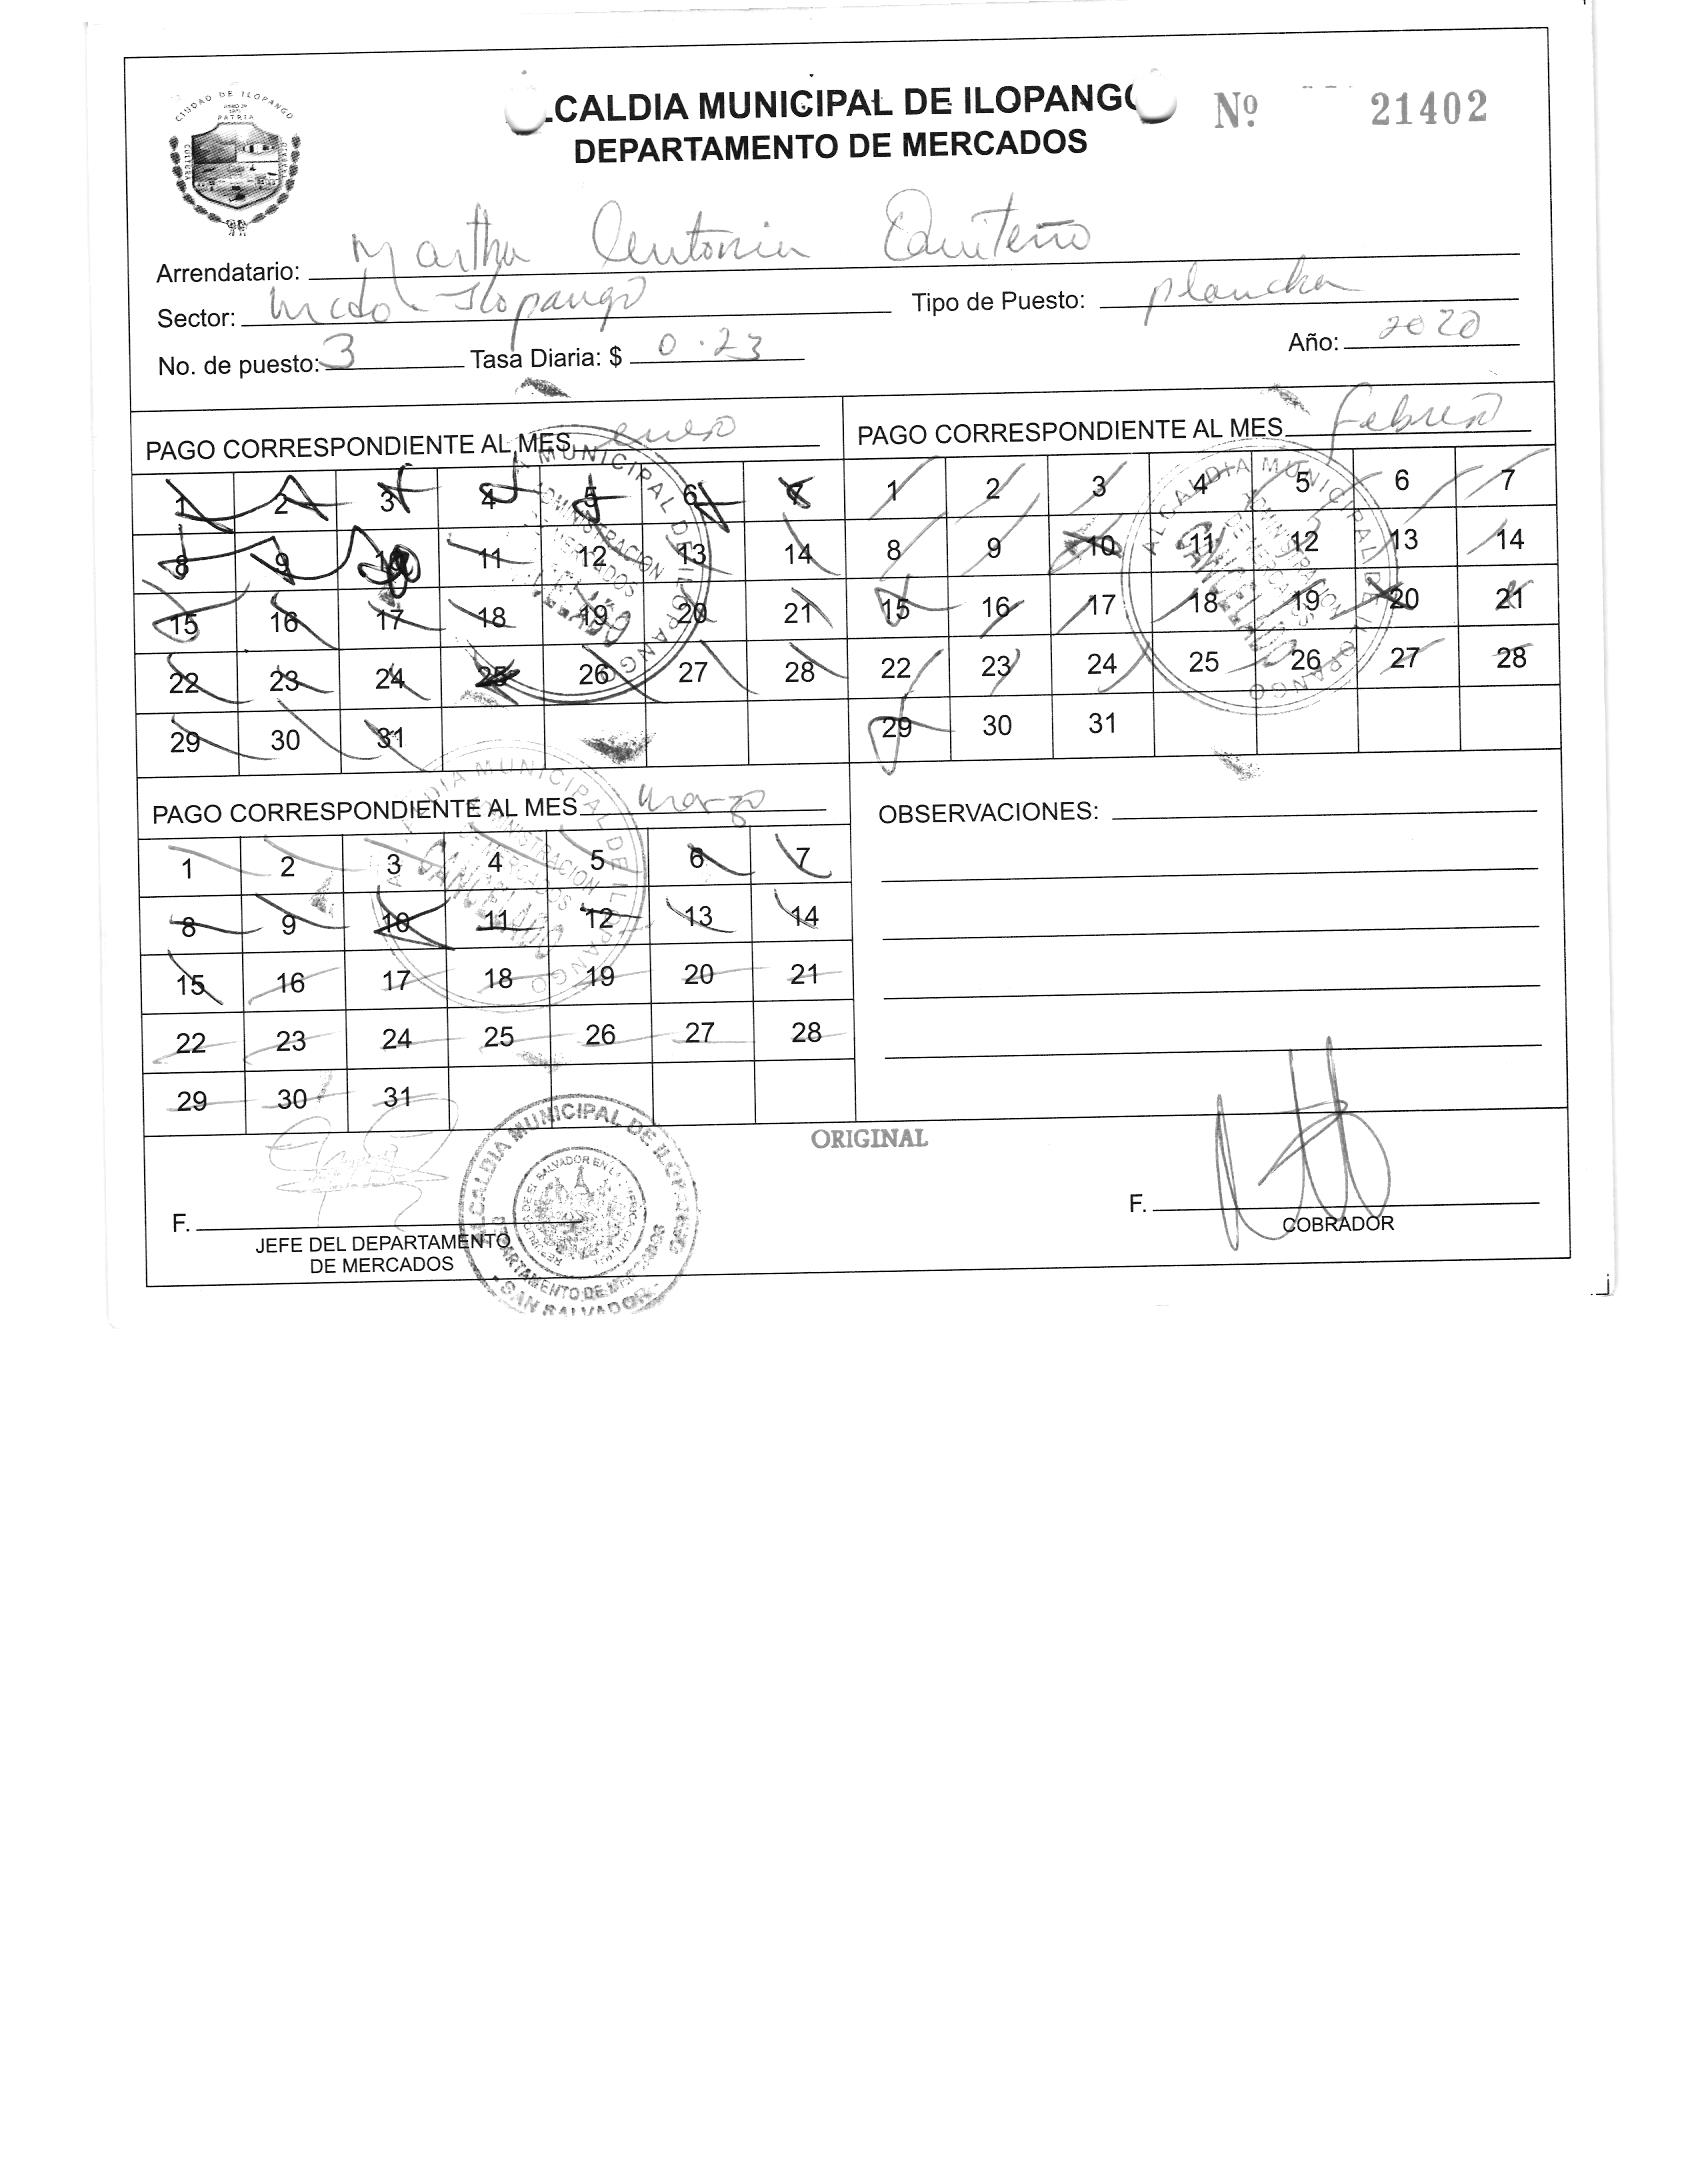 CIUDAD DE ILOPANGO
PATRIA
CULTURA
LCALDIA MUNICIPAL DE ILOPANGO
Nº 21402
DEPARTAMENTO DE MERCADOS
Arrendatario: Martha Antonia Quiteño
Sector: Mcdo. Ilopango Tipo de Puesto: plancha
No. de puesto: 3 Tasa Diaria: $ 0.23 Año: 2020
PAGO CORRESPONDIENTE AL MES enero
1 2 3 4 5 6 7
8 9 10 11 12 13 14
15 16 17 18 19 20 21
22 23 24 25 26 27 28
29 30 31
PAGO CORRESPONDIENTE AL MES Febrero
1 2 3 4 5 6 7
8 9 10 11 12 13 14
15 16 17 18 19 20 21
22 23 24 25 26 27 28
29 30 31
PAGO CORRESPONDIENTE AL MES marzo
1 2 3 4 5 6 7
8 9 10 11 12 13 14
15 16 17 18 19 20 21
22 23 24 25 26 27 28
29 30 31
ALCALDIA MUNICIPAL DE ILOPANGO
ADMINISTRACION
DE MERCADOS
CANCELADO
OBSERVACIONES:
ORIGINAL
F.
JEFE DEL DEPARTAMENTO
DE MERCADOS
ALCALDIA MUNICIPAL DE ILOPANGO
DEPARTAMENTO DE MERCADOS
SAN SALVADOR
F.
COBRADOR